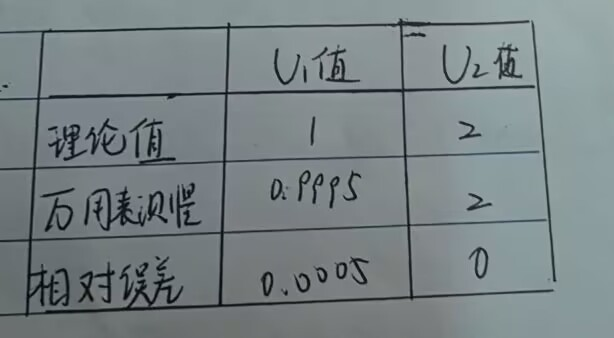 U₁值 U₂值
理论值 1 2
万用表测值 0.9995 2
相对误差 0.0005 0